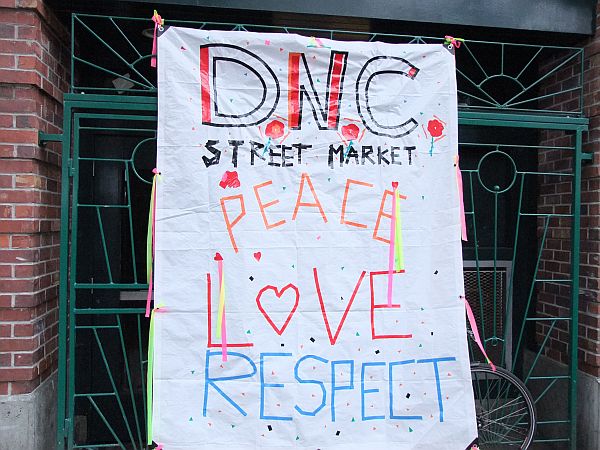 DNC
STREET MARKET
PEACE
LOVE
RESPECT